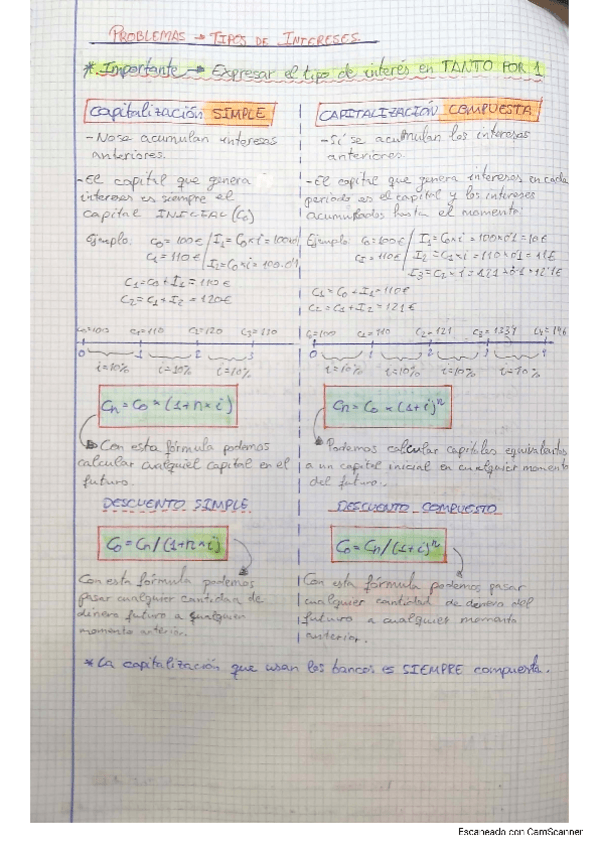 PROBLEMAS → TIPOS DE INTERESES.
*. Importante → Expresar el tipo de interés en TANTO POR 1
Capitalización SIMPLE
- No se acumulan intereses
anteriores.
- El capital que genera
intereses es siempre el
capital INICIAL (C₀)
Ejemplo: C₀ = 100€ / I₁ = C₀×i = 100×0'1
C₁ = 110€ / I₂ = C₀×i = 100×0'1
C₁ = C₀ + I₁ = 110€
C₂ = C₁ + I₂ = 120€
C₀=100 C₁=110 C₂=120 C₃=130
0 1 2 3
i=10% i=10% i=10%
Cn = C₀ × (1+n×i)
Con esta fórmula podemos
calcular cualquier capital en el
futuro.
DESCUENTO SIMPLE
C₀ = Cn/(1+n×i)
Con esta fórmula podemos
pasar cualquier cantidad de
dinero futuro a cualquier
momento anterior.
CAPITALIZACIÓN COMPUESTA
- Sí se acumulan los intereses
anteriores
- El capital que genera intereses en cada
periodo es el capital y los intereses
acumulados hasta el momento
Ejemplo: C₀=100€ / I₁ = C₀×i = 100×0'1 = 10€
C₁ = 110€ / I₂ = C₁×i = 110×0'1 = 11€
I₃ = C₂×i = 121×0'1 = 12'1€
C₁ = C₀ + I₁ = 110€
C₂ = C₁ + I₂ = 121€
C₀=100 C₁=110 C₂=121 C₃=133'1 C₄=146
0 1 2 3 4
i=10% i=10% i=10% i=10%
Cn = C₀ × (1+i)ⁿ
Podemos calcular capitales equivalentes
a un capital inicial en cualquier momento
del futuro.
DESCUENTO COMPUESTO
C₀ = Cn/(1+i)ⁿ
Con esta fórmula podemos pasar
cualquier cantidad de dinero del
futuro a cualquier momento
anterior.
* La capitalización que usan los bancos es SIEMPRE compuesta.
Escaneado con CamScanner